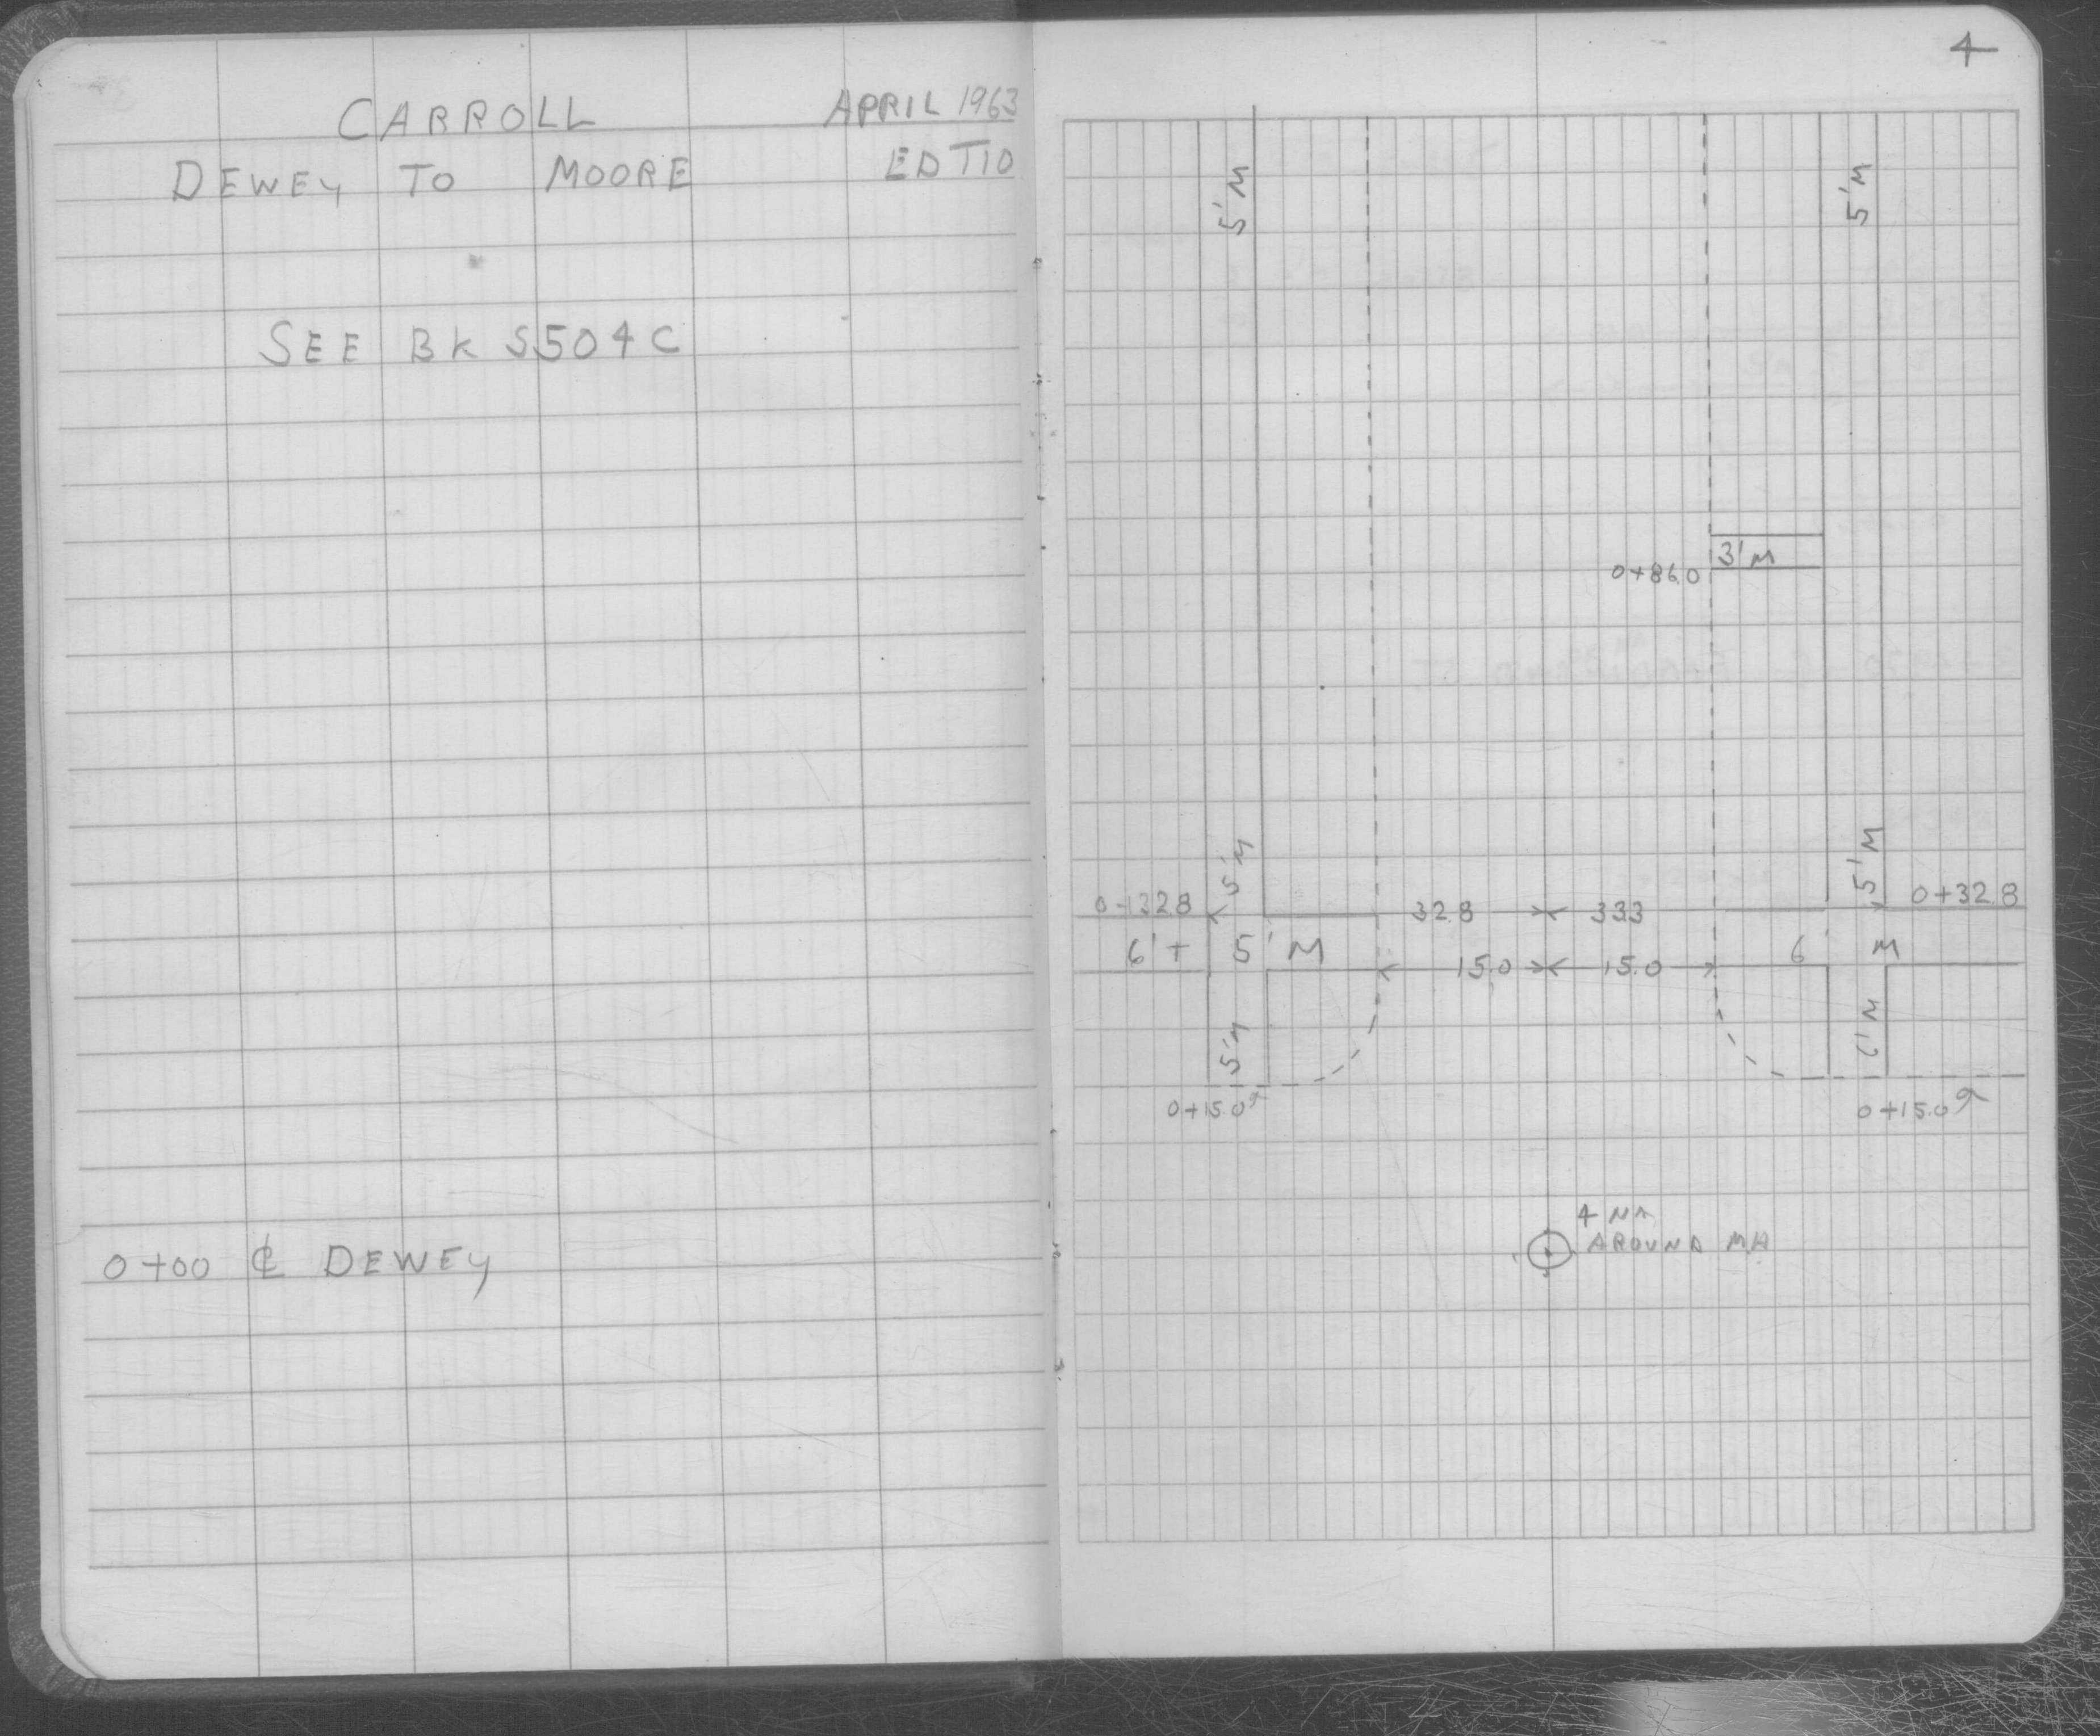 CARROLL APRIL 1963
DEWEY TO MOORE
SEE BK S504C
0+00 ℄ DEWEY
4
5'M 5'M
3'M
0+86.0
5'M 5'M
0+32.8 32.8 33.3 0+32.8
6'T 5'M 6' M
15.0 15.0
5'M 6'M
0+15.0 0+15.0
4
AROUND MH